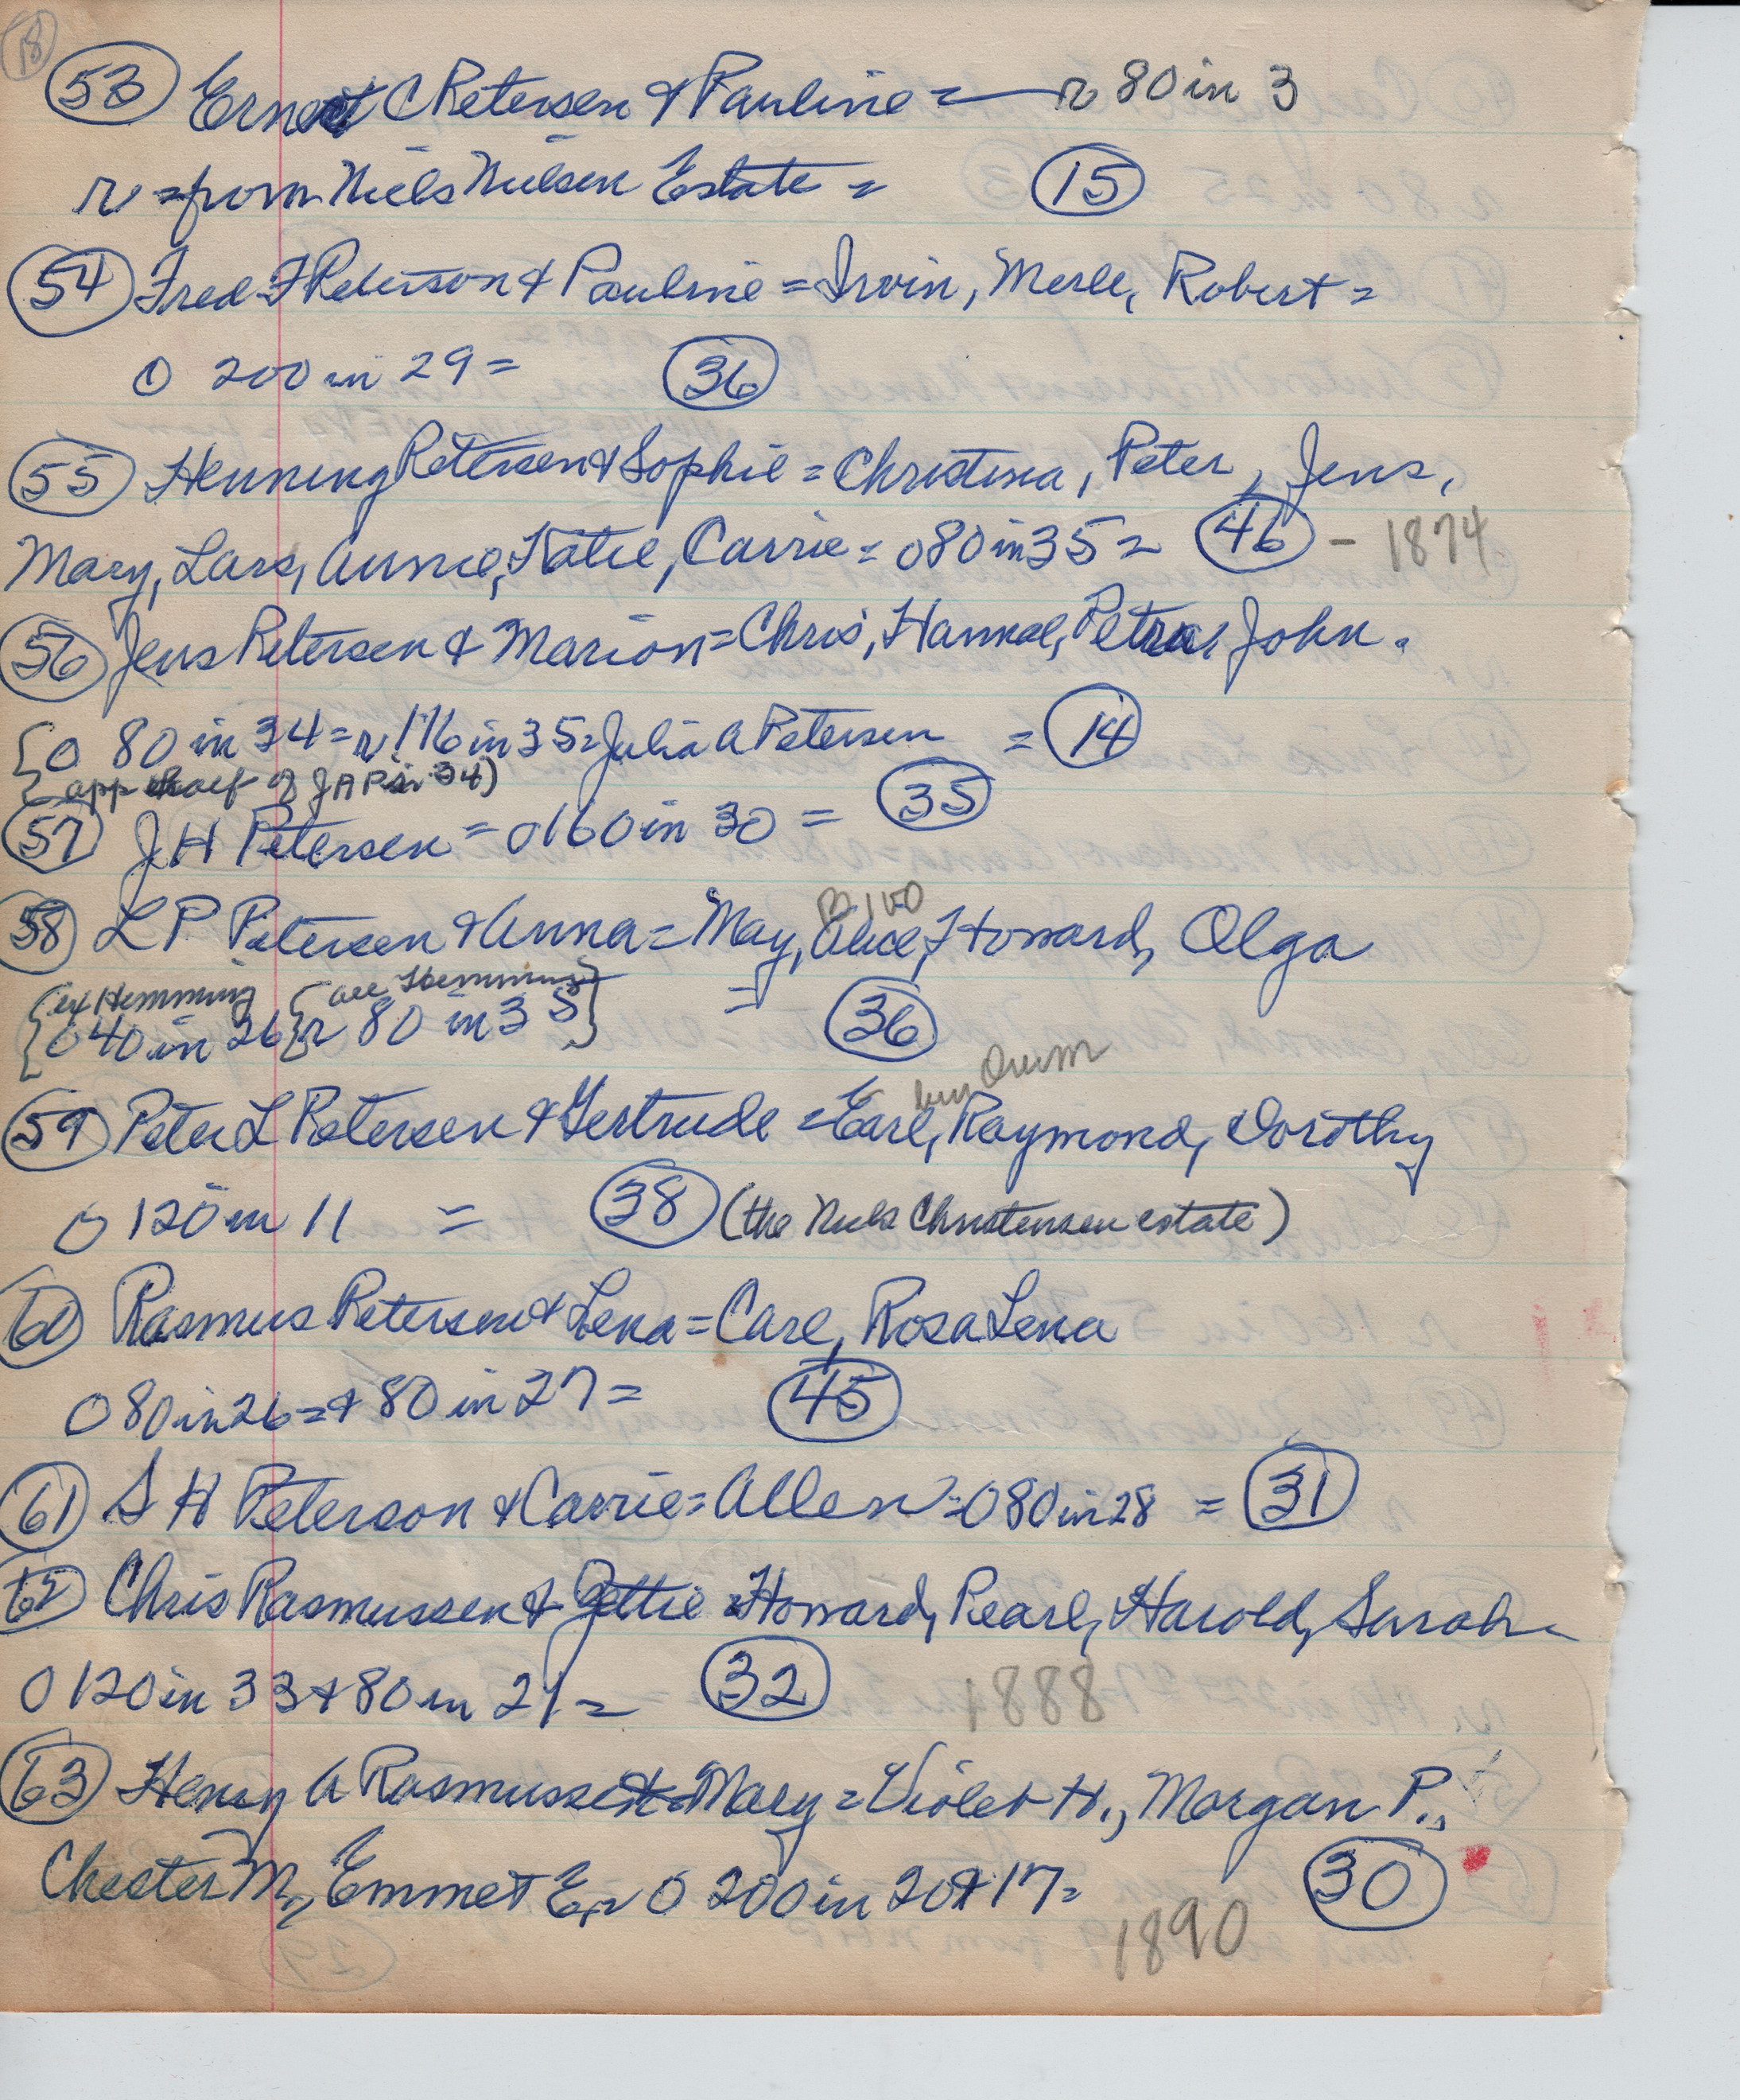 18
53 Ernest C Petersen & Pauline = r 80 in 3
r = from Niels Nielsen Estate = 15
54 Fred F Peterson & Pauline = Irvin, Merle, Robert =
O 200 in 29 = 36
55 Henning Petersen & Sophie = Christina, Peter, Jens,
Mary, Lars, Annie, Katie, Carrie = O 80 in 35 = 46 - 1874
56 Jens Petersen & Marion = Chris, Hannah, Petrea, John.
{O 80 in 34 = r 116 in 35 = Julia A Petersen = 14
{app half of JAP in 34)
57 J H Petersen = O 160 in 30 = 35
R 100
58 L P Petersen & Anna = May, Alice, Howard, Olga
{ex Hemming {see Hemming}
{O 40 in 26 {r 80 in 35} = 36
Orum
59 Peter L Petersen & Gertrude = Earl, Raymond, Dorothy
O 120 in 11 = 38 (the Niels Christensen estate)
60 Rasmus Petersen & Lena = Carl, Rosa Lena
O 80 in 26 = & 80 in 27 = 45
61 S H Peterson & Carrie = Allen = O 80 in 28 = 31
62 Chris Rasmussen & Jettie = Howard, Pearl, Harold, Sarah =
O 120 in 33 & 80 in 21 = 32 1888
63 Henry A Rasmussen & Mary = Violet H., Morgan P.,
Chester M., Emmet E. = O 200 in 20 & 17 = 30
1890